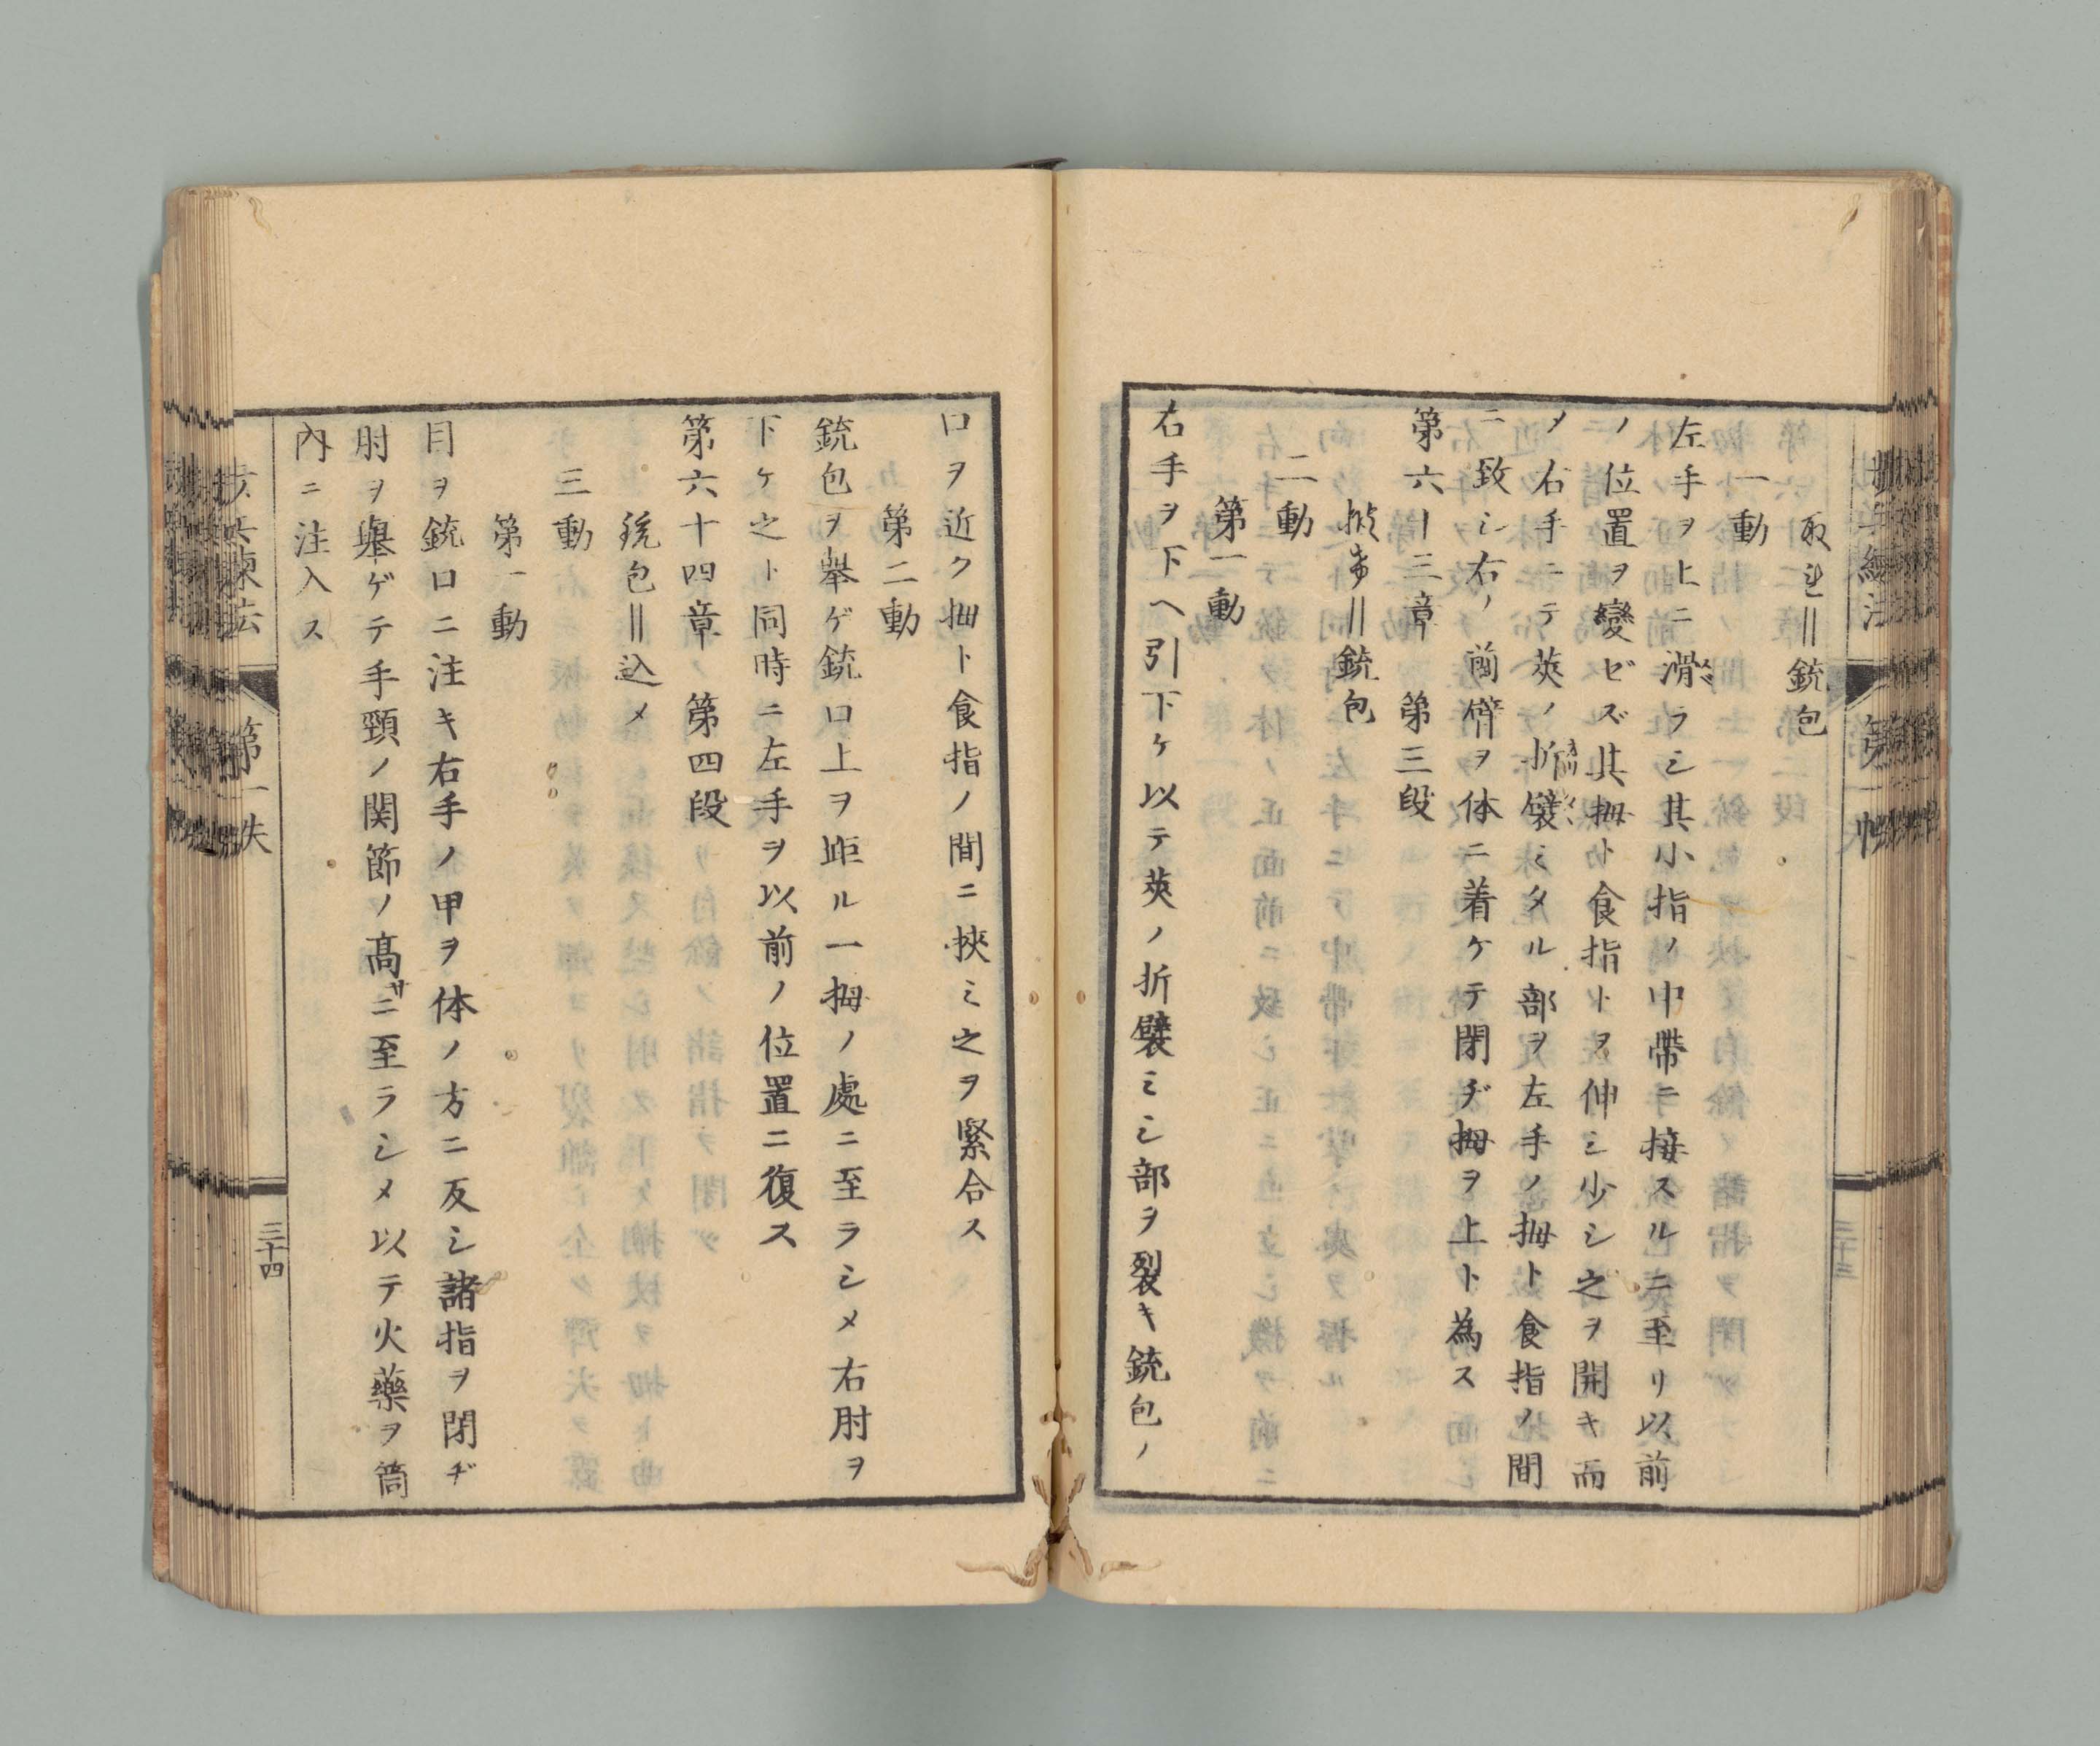 取レ＝銃包
一動
左手ヲ上ニ滑ラシ其小指ノ中帶ニ接スルニ至リ以前
ノ位置ヲ變ゼズ其拇ト食指トヲ伸ミ少シ之ヲ開キ而
メ右手ニテ莢ノ折襞ミタル部ヲ左手ノ拇ト食指ノ間
ニ致シ右ノ前臂ヲ体ニ着ケテ閉ヂ拇ヲ上ト為ス
第六十三章 第三段
＝銃包
二動
第一動
右手ヲ下ヘ引下ケ以テ莢ノ折襞ミシ部ヲ裂キ銃包ノ
口ヲ近ク拇ト食指ノ間ニ挾ミ之ヲ緊合ス
第二動
銃包ヲ擧ゲ銃口上ヲ距ル一拇ノ處ニ至ラシメ右肘ヲ
下ケ之ト同時ニ左手ヲ以前ノ位置ニ復ス
第六十四章 第四段
銃包＝込メ
三動
第一動
目ヲ銃口ニ注キ右手ノ甲ヲ体ノ方ニ反シ諸指ヲ閉ヂ
肘ヲ擧ゲテ手頸ノ関節ノ高サニ至ラシメ以テ火藥ヲ筒
內ニ注入ス
歩兵練法
第一帙
三十四